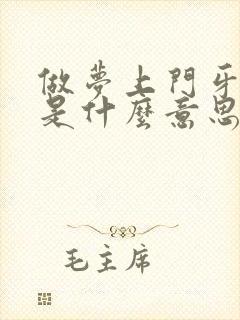 做夢上門牙
是什麼意思
毛主席